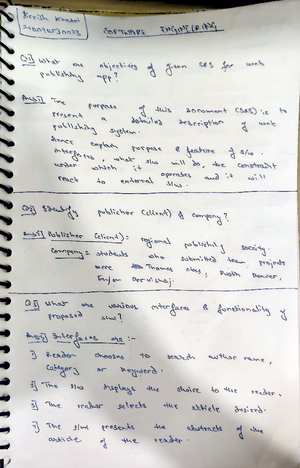 Software Engineering
Q1) What are objectives of given SRS for web
publishing app?
Ans1) The purpose of this document (SRS) is to
present a detailed description of web
publishing system.
Hence explain purpose & feature of s/w.
interfaces, what s/w will do, the constraint
under which it operates and it will
react to external s/ws.
Q2) Identify publisher (client) & company?
Ans2) Publisher (client) = regional publishing society.
Company = students who submitted team projects
were Thomas clay, Dustin Denver,
Q3) What are various interfaces & functionality of
proposed s/w?
Ans3) Interfaces are :-
1) Reader chooses to search author name,
category or keyword.
2) The s/w displays the choice to the reader.
3) The reader selects the article desired.
4) The s/w presents the abstracts of the
article of the reader.